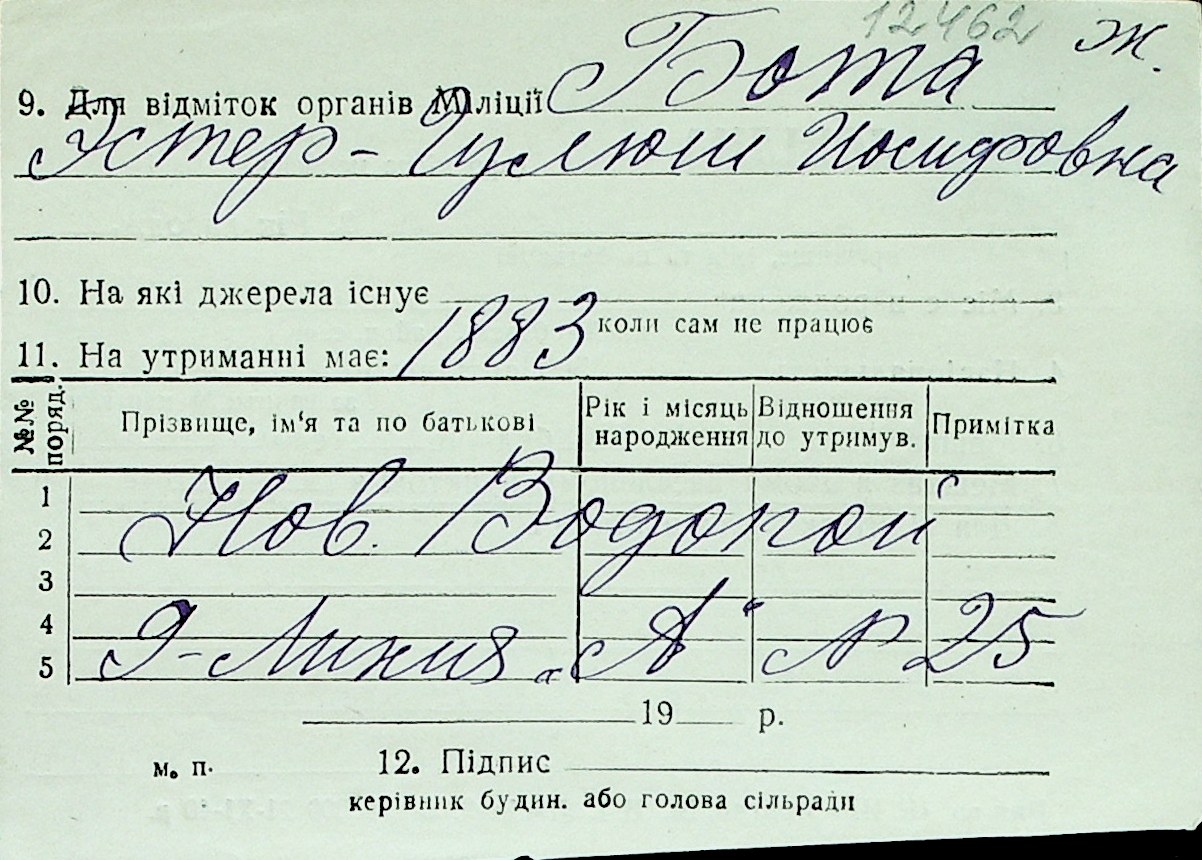 12462 ж.
9. Для відміток органів Міліції Бота
Эстер-Цулюш Иосифовна
10. На які джерела існує
коли сам не працює
11. На утриманні має: 1883
№№ поряд.
Прізвище, ім'я та по батькові
Рік і місяць народження
Відношення до утримув.
Примітка
1
2
Нов. Водопой
3
4
5
9-Линия „А" № 25
19 р.
м. п. 12. Підпис
керівник будин. або голова сільради